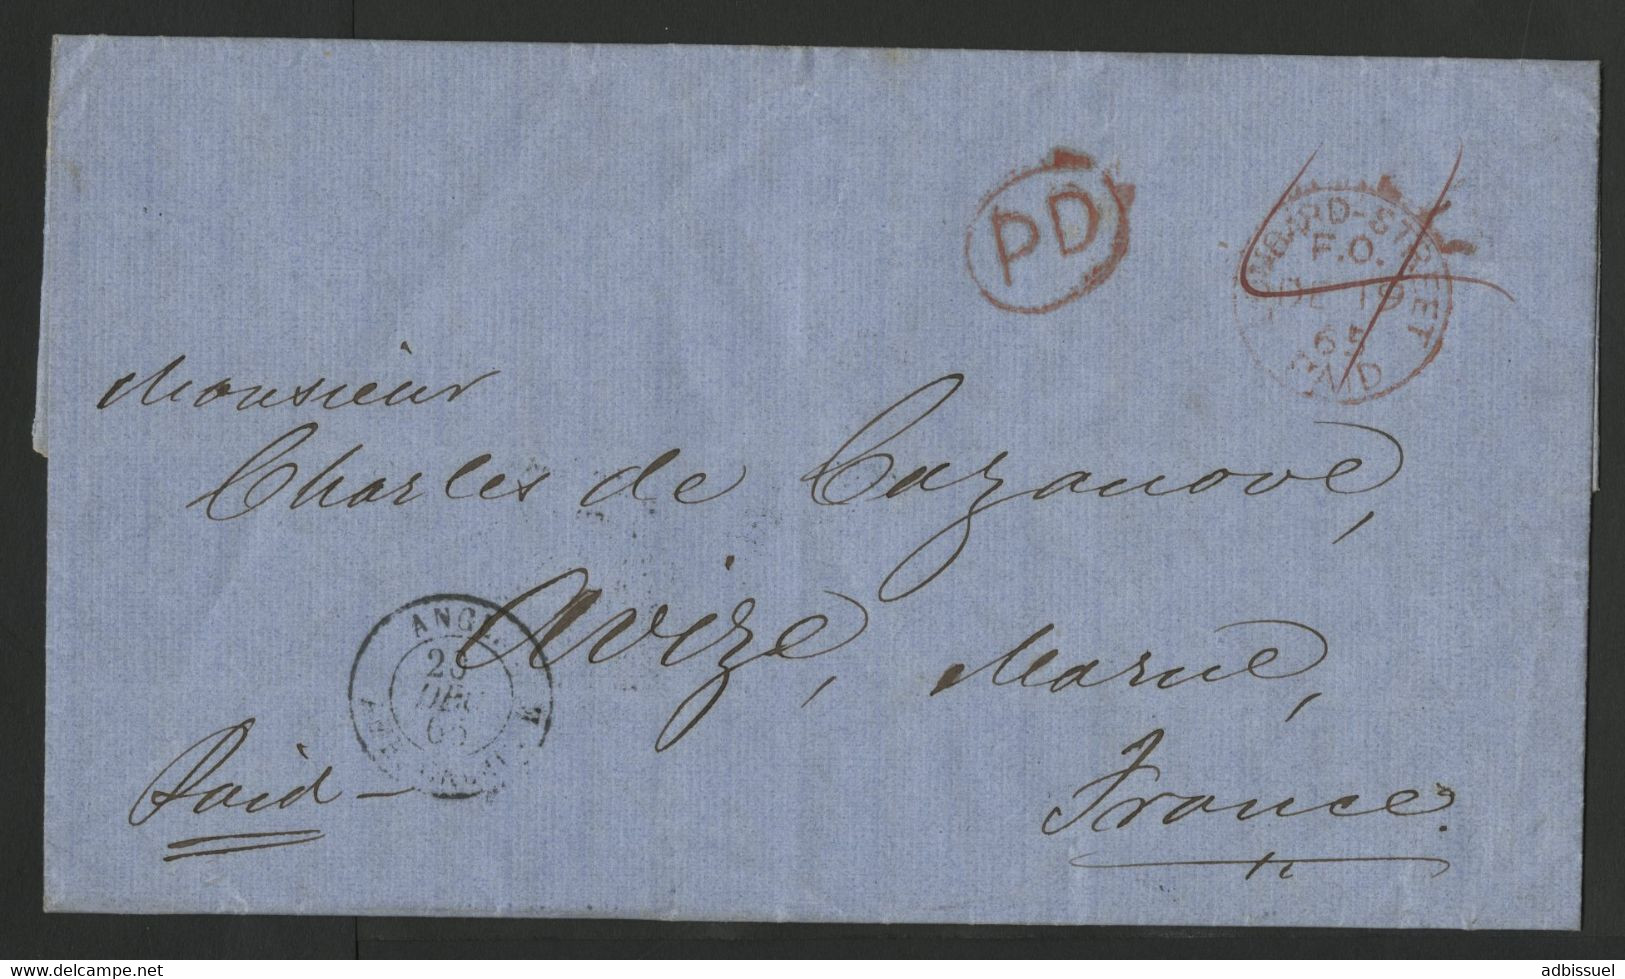 PD
LOMBARD-STREET
F.O.
DE 19
65
PAID
4/
Monsieur
Charles de Cazanove,
Avize, Marne,
ANGL.
DEC
65
CALAIS
Paid –
France.
delcampe.net
adbissuel